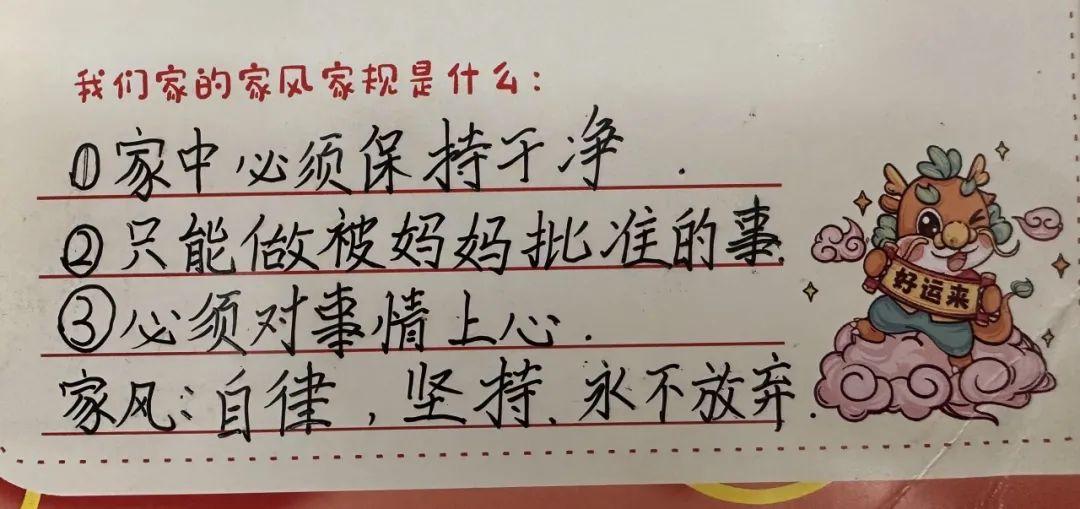 我们家的家风家规是什么：
①家中必须保持干净.
②只能做被妈妈批准的事.
③必须对事情上心.
家风：自律，坚持、永不放弃.
好运来